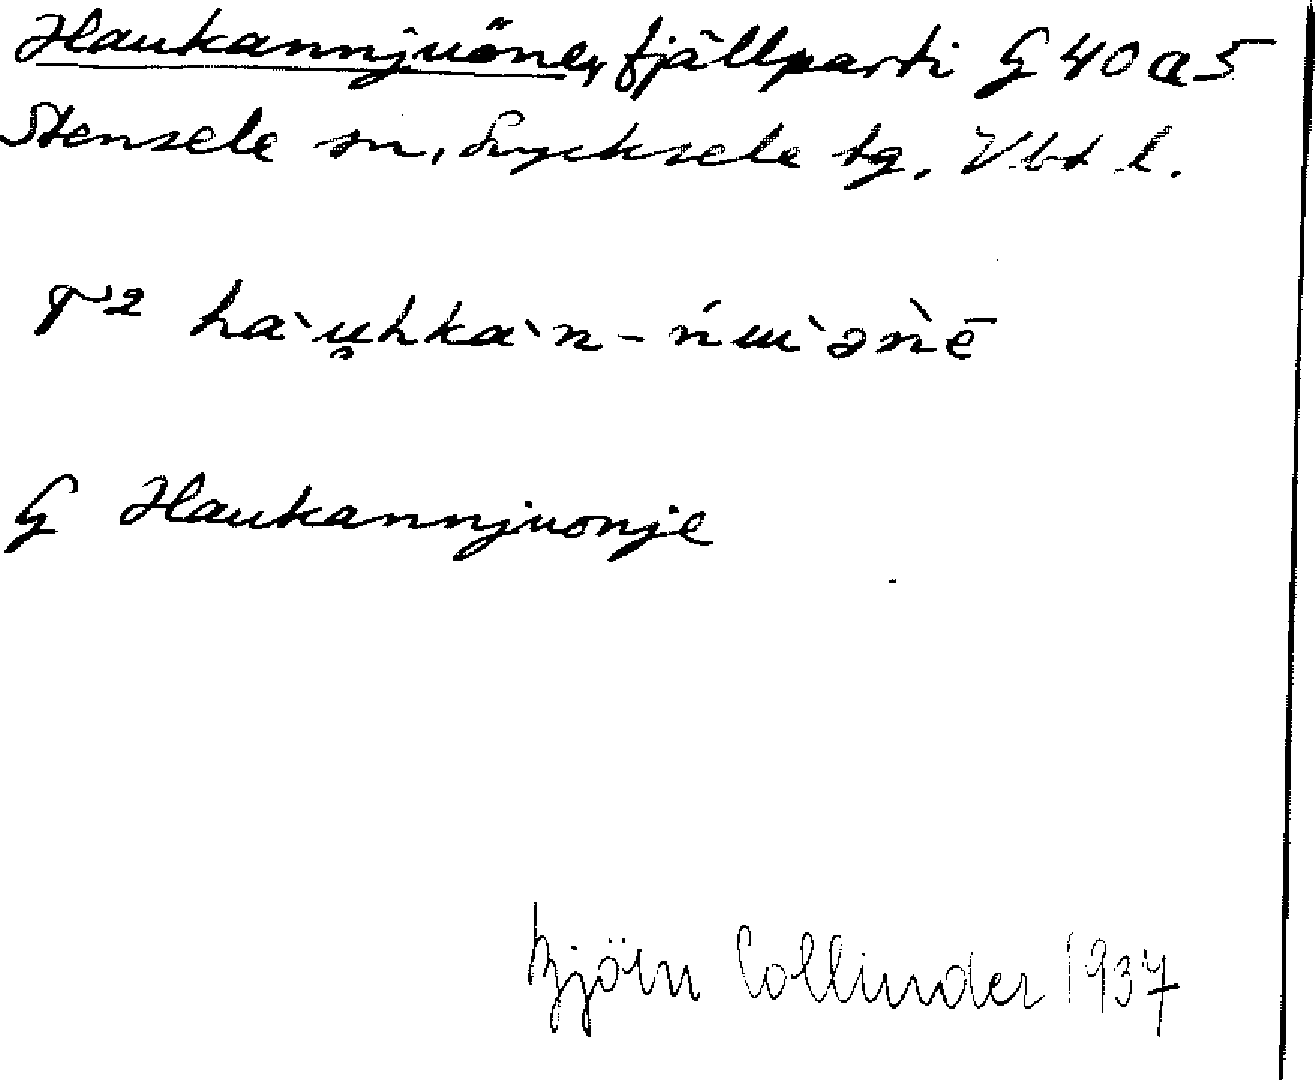 Haukannjuöne, fjällparti G 40 a 5
Stensele sn, Lycksele tg. Vbt l.
T2 hàu̯hkàn-ńuu̯ə̀ǹē
G Haukannjuonje
Björn Collinder 1937